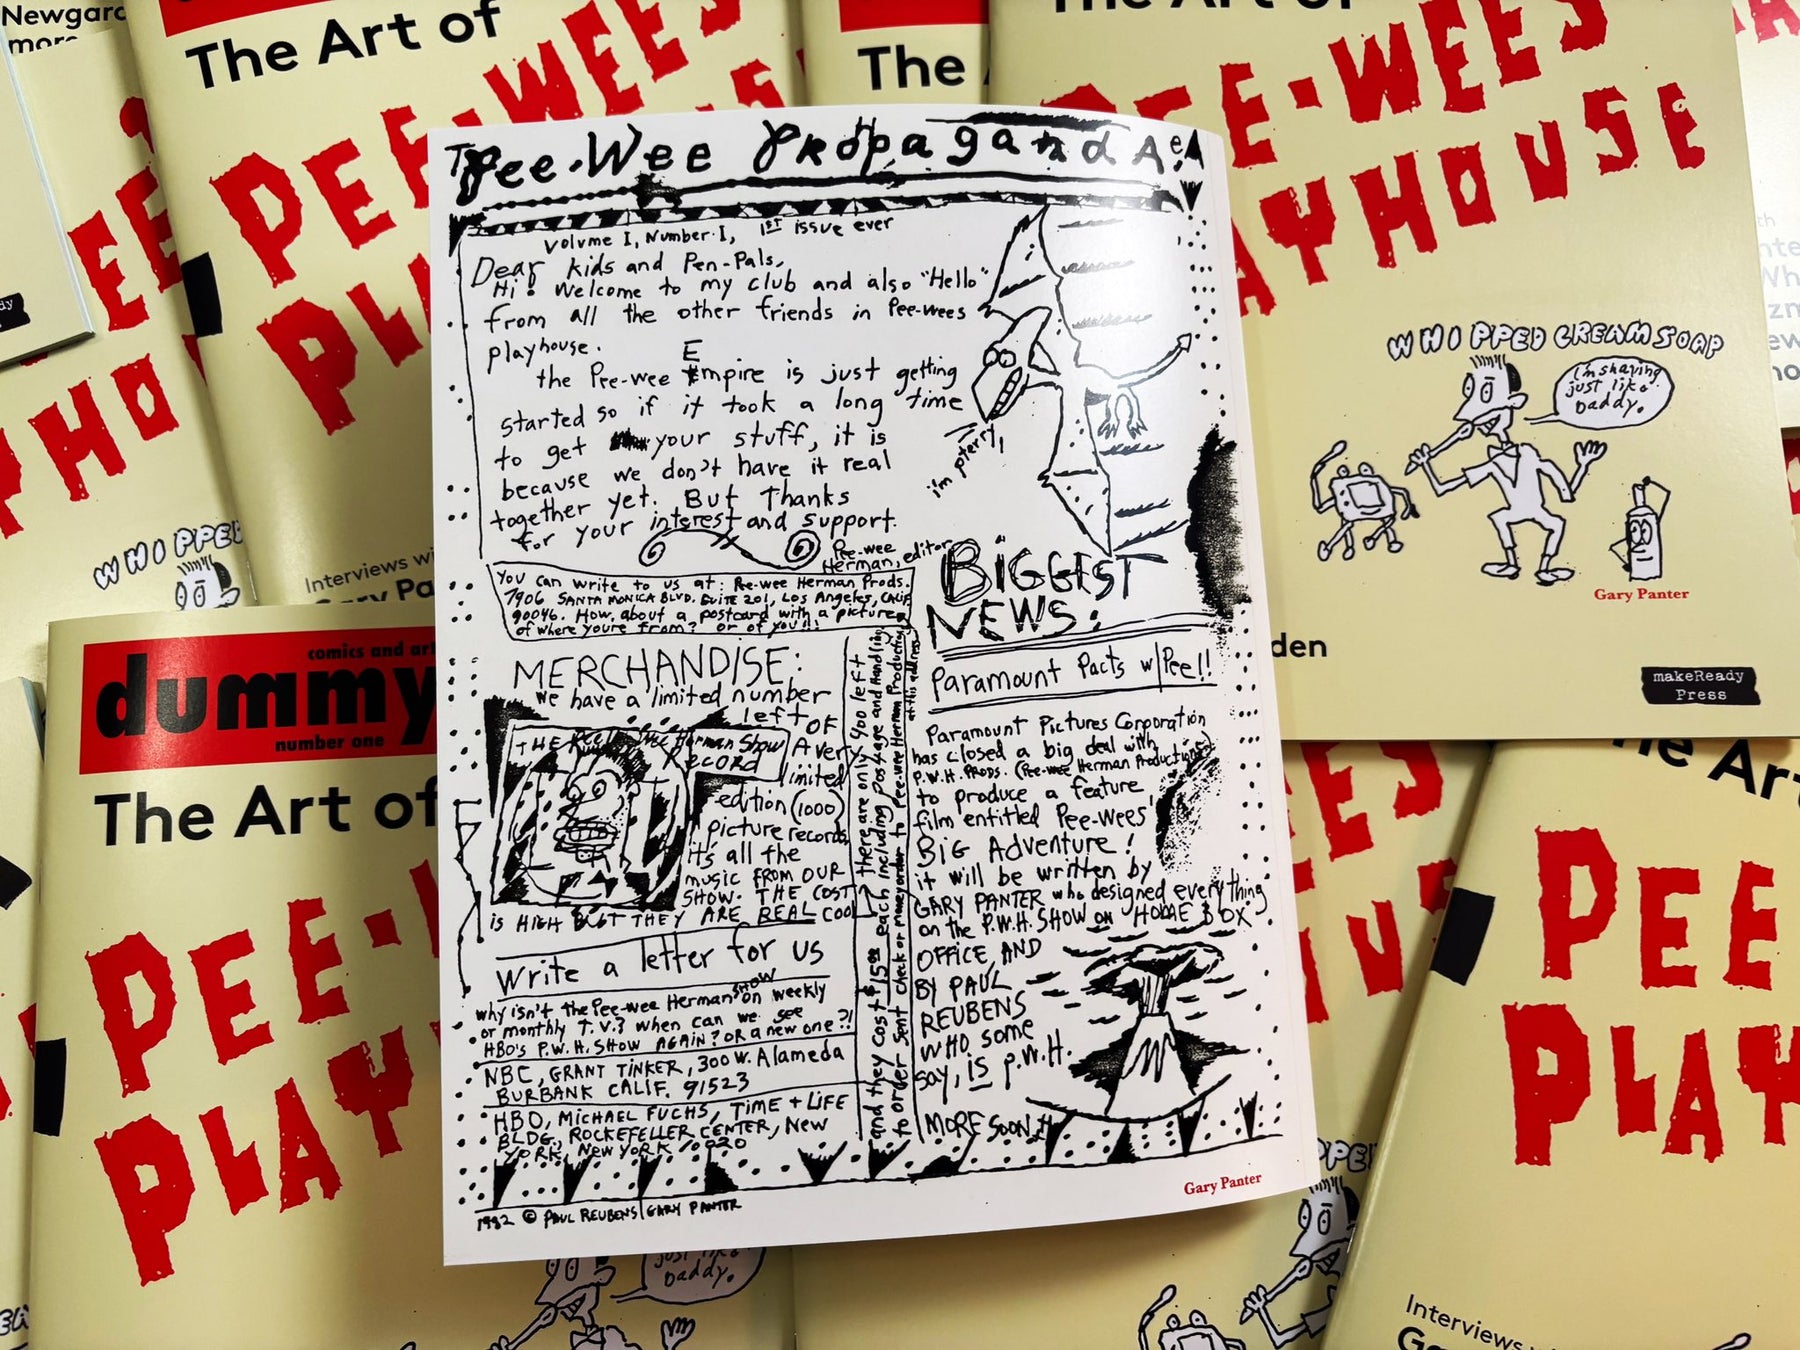 The Pee-Wee Propaganda
Volume I, Number I, 1ST issue ever
Dear kids and Pen-Pals,
Hi! Welcome to my club and also "Hello"
from all the other friends in Pee-wees
playhouse.
the Pee-wee Empire is just getting
started so if it took a long time
to get your stuff, it is
because we don't have it real
together yet. But Thanks
for your interest and support.
Pee-wee
Herman, editor
i'm pterry!
You can write to us at: Pee-wee Herman Prods.
7906 SANTA MONICA BLVD. SUITE 201, LOS Angeles, CALIF.
90046. How about a postcard with a picture
of where youre from? or of you!!!
MERCHANDISE:
we have a limited number
left OF
A very
limited
edition (1000)
picture records
it's all the
music FROM OUR
SHOW. THE COST
is HIGH BUT THEY ARE REAL COOL
THE Pee-Wee Herman Show
RECORD
there are only 400 left
and they cost $15.00 each including postage and handling
to order sent check or money order to Pee-wee Herman Productions
at this address
Write a letter for us
why isn't the Pee-wee Herman SHOW on weekly
or monthly T.V.? when can we see
HBO's P.W.H. SHOW AGAIN? OR a new one?!
NBC, GRANT TINKER, 300 W. Alameda
BURBANK CALIF. 91523
HBO, MICHAEL FUCHS, TIME + LIFE
BLDG., ROCKEFELLER CENTER, New
YORK, New YORK 10020
BIGGEST
NEWS:
Paramount Pacts w/Pee!!
Paramount Pictures Corporation
has closed a big deal with
P.W.H. PRODS. (Pee-wee Herman Productions)
to produce a feature
film entitled Pee-wees'
BiG Adventure!
it will be written by
GARY PANTER who designed everything
on the P.W.H. SHOW on HOME BOX
OFFICE, AND
BY PAUL
REUBENS
WHO some
say, is P.W.H.
MORE SOON!!
1982 © PAUL REUBENS/GARY PANTER
Gary Panter
Newgard
more
The Art of
PEE-WEE'S
The
The Art of
PEE-WEE'S
PLAYHOUSE
WHIPPED CREAM SOAP
i'm shaving
just like
Daddy.
Gary Panter
makeReady
Press
den
WHIPPED
Interviews wi
Gary Pa
comics and art
dummy
number one
The Art of
PEE-
PLAY
just like
Daddy.
The Art
PEE
PLAY
Interviews